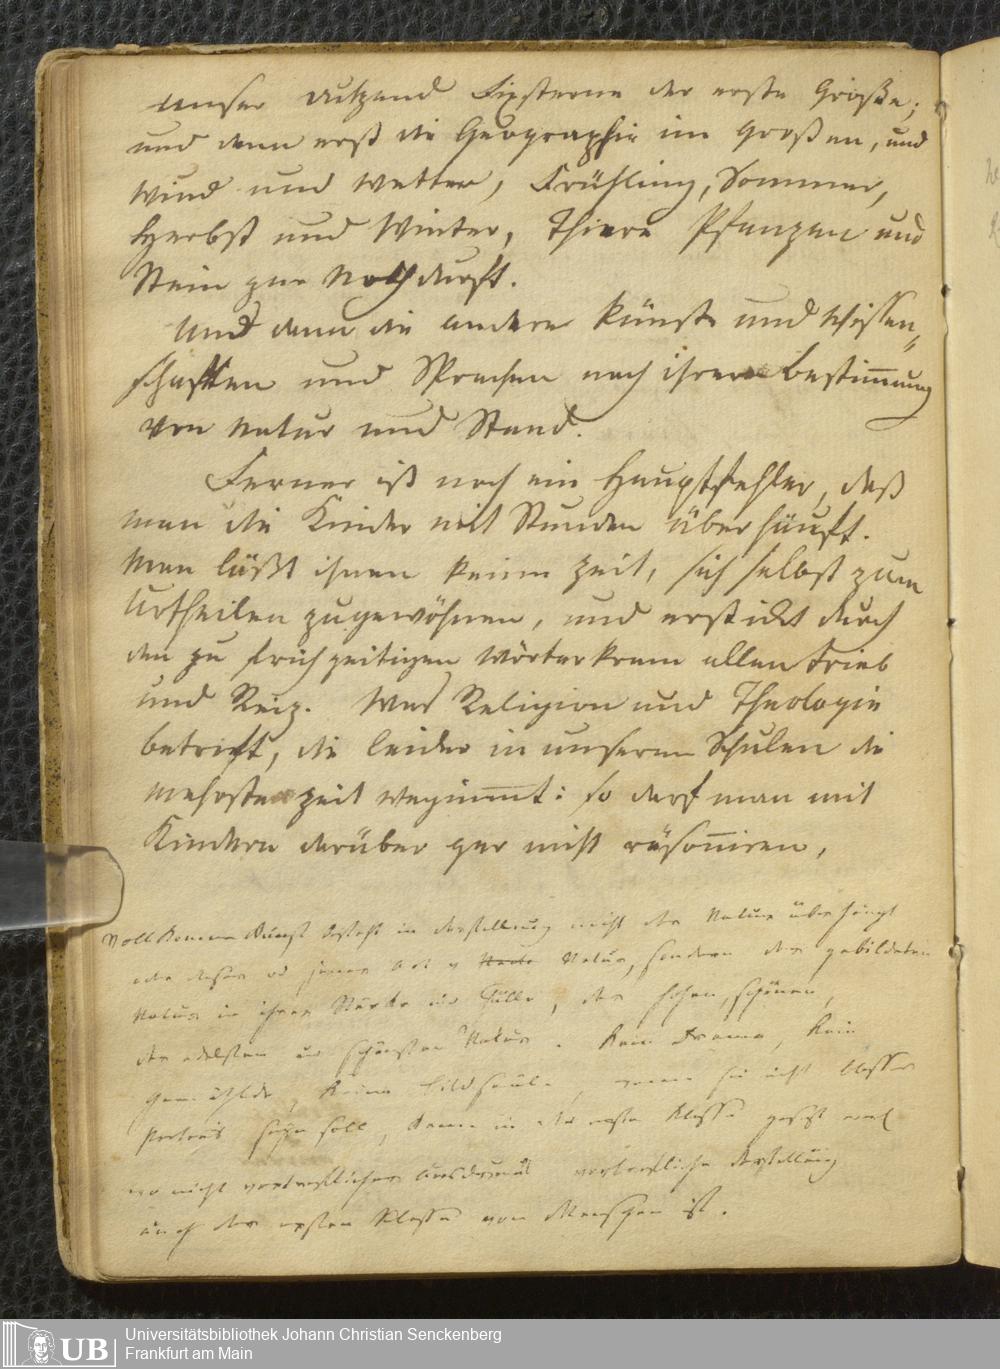 unser dutzend Fixsterne der erste Größe;
und dann erst die Geographie im Großen, und
Wind und Wetter, Frühling, Sommer,
Herbst und Winter, Thiere Pflanzen und
Stein zur Nothdurft.
Und dann die andern Künste und Wissen„
schaften und Sprachen nach ihrer Bestim̅ung
von Natur und Stand.
Ferner ist noch ein Hauptfehler, daß
man die Kinder mit Stunden überhäuft.
Man läßt ihnen keine Zeit, sich selbst zum
Urtheilen zugewöhnen, und erstickt durch
den zu früh zeitigen Wörterkram allen Trieb
und Reiz. Was Religion und Theologie
betrift, die leider in unseren Schulen die
mehrste Zeit wegnim̅t: so darf man mit
Kindern darüber gar nicht räson̅iren,
Vollkommne Kunst besteht in Darstellung nicht der Natur überhaupt
oder dieser und jener Art Natur, sondern der gebildeten
Natur in ihrer Stärke und Fülle, der hohen, schönen,
der edelsten und schönsten Natur. Kein Drama, kein
Gemählde, keine Bildsäule, wenn sie nicht blosses
Portrait seyn soll, kann in die erste Klasse gesetzt werden
wo nicht vortreflicher Ausdruck vortrefliche Darstellung
auch der ersten Klasse von Menschen ist.
UB
Universitätsbibliothek Johann Christian Senckenberg
Frankfurt am Main